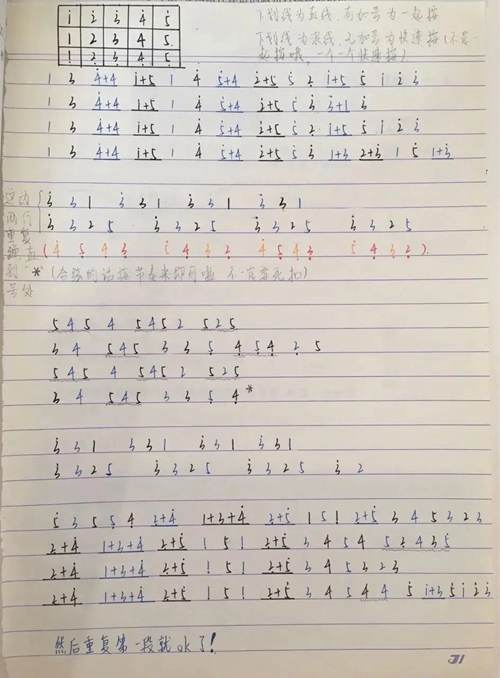 1 2 3 4 5
1 2 3 4 5
1 2 3 4 5
下划线为直线，有加号为一起按
下划线为波浪，无加号为快速按（不是一
起按哦，一个一个快速按）
1 3 4+4 1+5 1 4 5+4 2+5 5 2 1+5 5 1 2 3
1 3 4+4 1+5 1 4 5+4 2+5 5 3 3+1 3
1 3 4+4 1+5 1 4 5+4 2+5 5 2 1+5 5 1 2 3
1 3 4+4 1+5 1 4 5+4 2+5 5 3 1+3 2+3 1 5 1+3
这边
两行
重复
垂直
到"*"
号处
3 3 1 3 3 1 3 3 1 3 3 1
3 3 2 5 3 3 2 5 3 3 2 5 3 3 2 5
(4 5 4 3 1 4 3 2 4 5 4 3 5 4 3 2)
(合弦的话按节奏来即可啦 不一定要死扣)
5 4 5 4 5 4 5 2 5 2 5
3 4 5 4 5 3 3 5 4 5 4 2 5
5 4 5 4 5 4 5 2 5 2 5
3 4 5 4 5 3 3 5 4*
3 3 1 3 3 1 3 3 1 3 3 1
3 3 2 5 3 3 2 5 3 3 2 5 3 2
5 3 5 5 4 2+4 1+3+4 2+5 1 5 1 2+5 3 4 5 3 2 3
2+4 1+3+4 2+5 1 5 1 2+5 3 4 5 4 5 2 4 3 5
2+4 1+3+4 2+5 1 5 1 2+5 3 4 5 3 2 3
2+4 1+3+4 2+5 1 5 1 2+5 3 4 5 4 4 5 1+3 5 1 2 3
然后重复第一段就ok了！